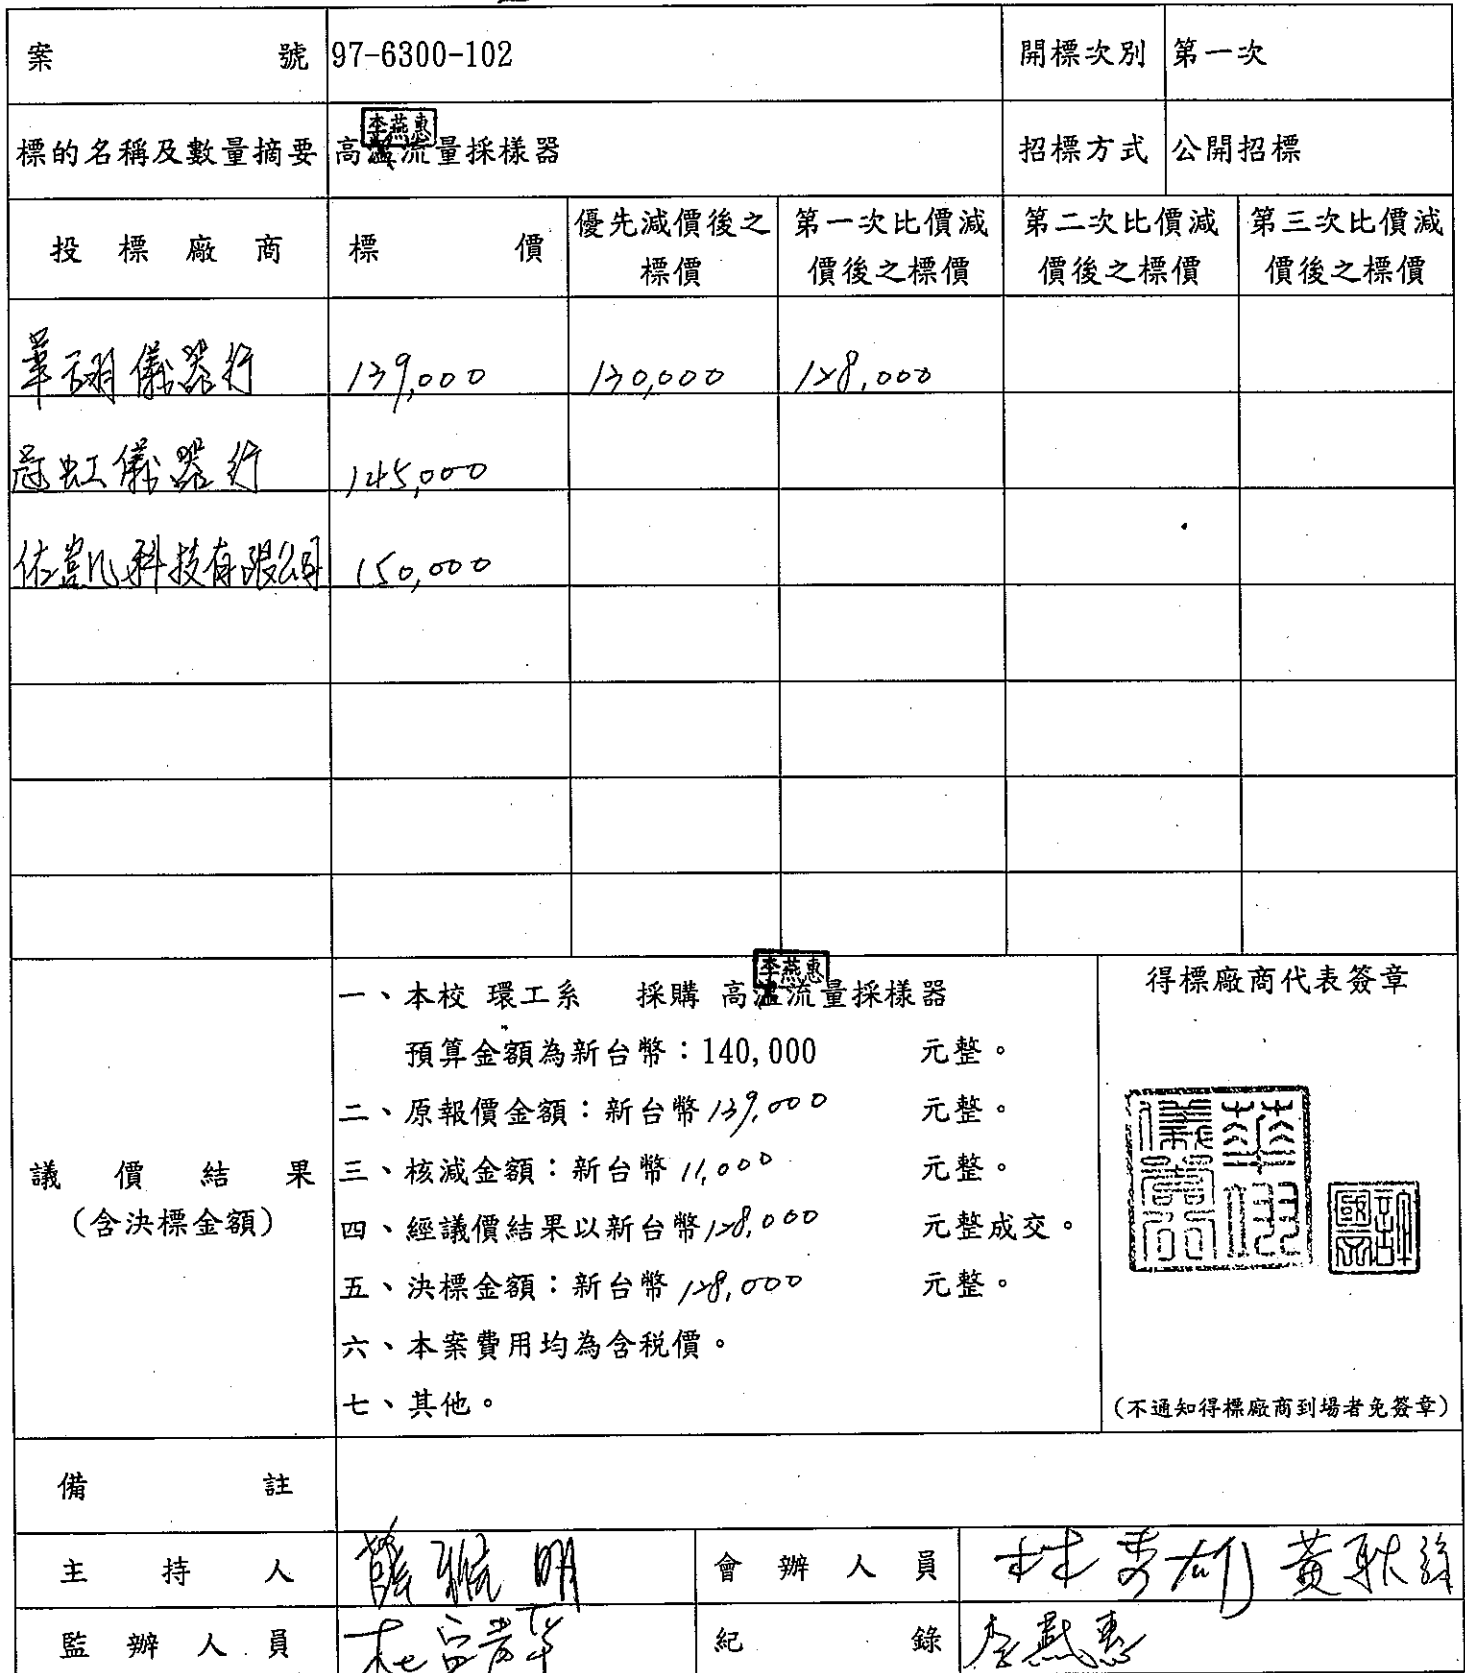 案 號 97-6300-102 開標次別 第一次
李燕惠
標的名稱及數量摘要 高溫流量採樣器 招標方式 公開招標
投標廠商 標價 優先減價後之標價 第一次比價減價後之標價 第二次比價減價後之標價 第三次比價減價後之標價
華翊儀器行 139,000 130,000 128,000
冠虹儀器行 145,000
科技有限公司 150,000
李燕惠
一、本校 環工系 採購 高溫流量採樣器 得標廠商代表簽章
預算金額為新台幣：140,000 元整。
二、原報價金額：新台幣139,000 元整。
議價結果 三、核減金額：新台幣11,000 元整。
（含決標金額） 四、經議價結果以新台幣128,000 元整成交。
五、決標金額：新台幣128,000 元整。
六、本案費用均為含稅價。
七、其他。 （不通知得標廠商到場者免簽章）
備註
主持人 明 會辦人員 林秀雄 黃耿
監辦人員 紀錄 李燕惠